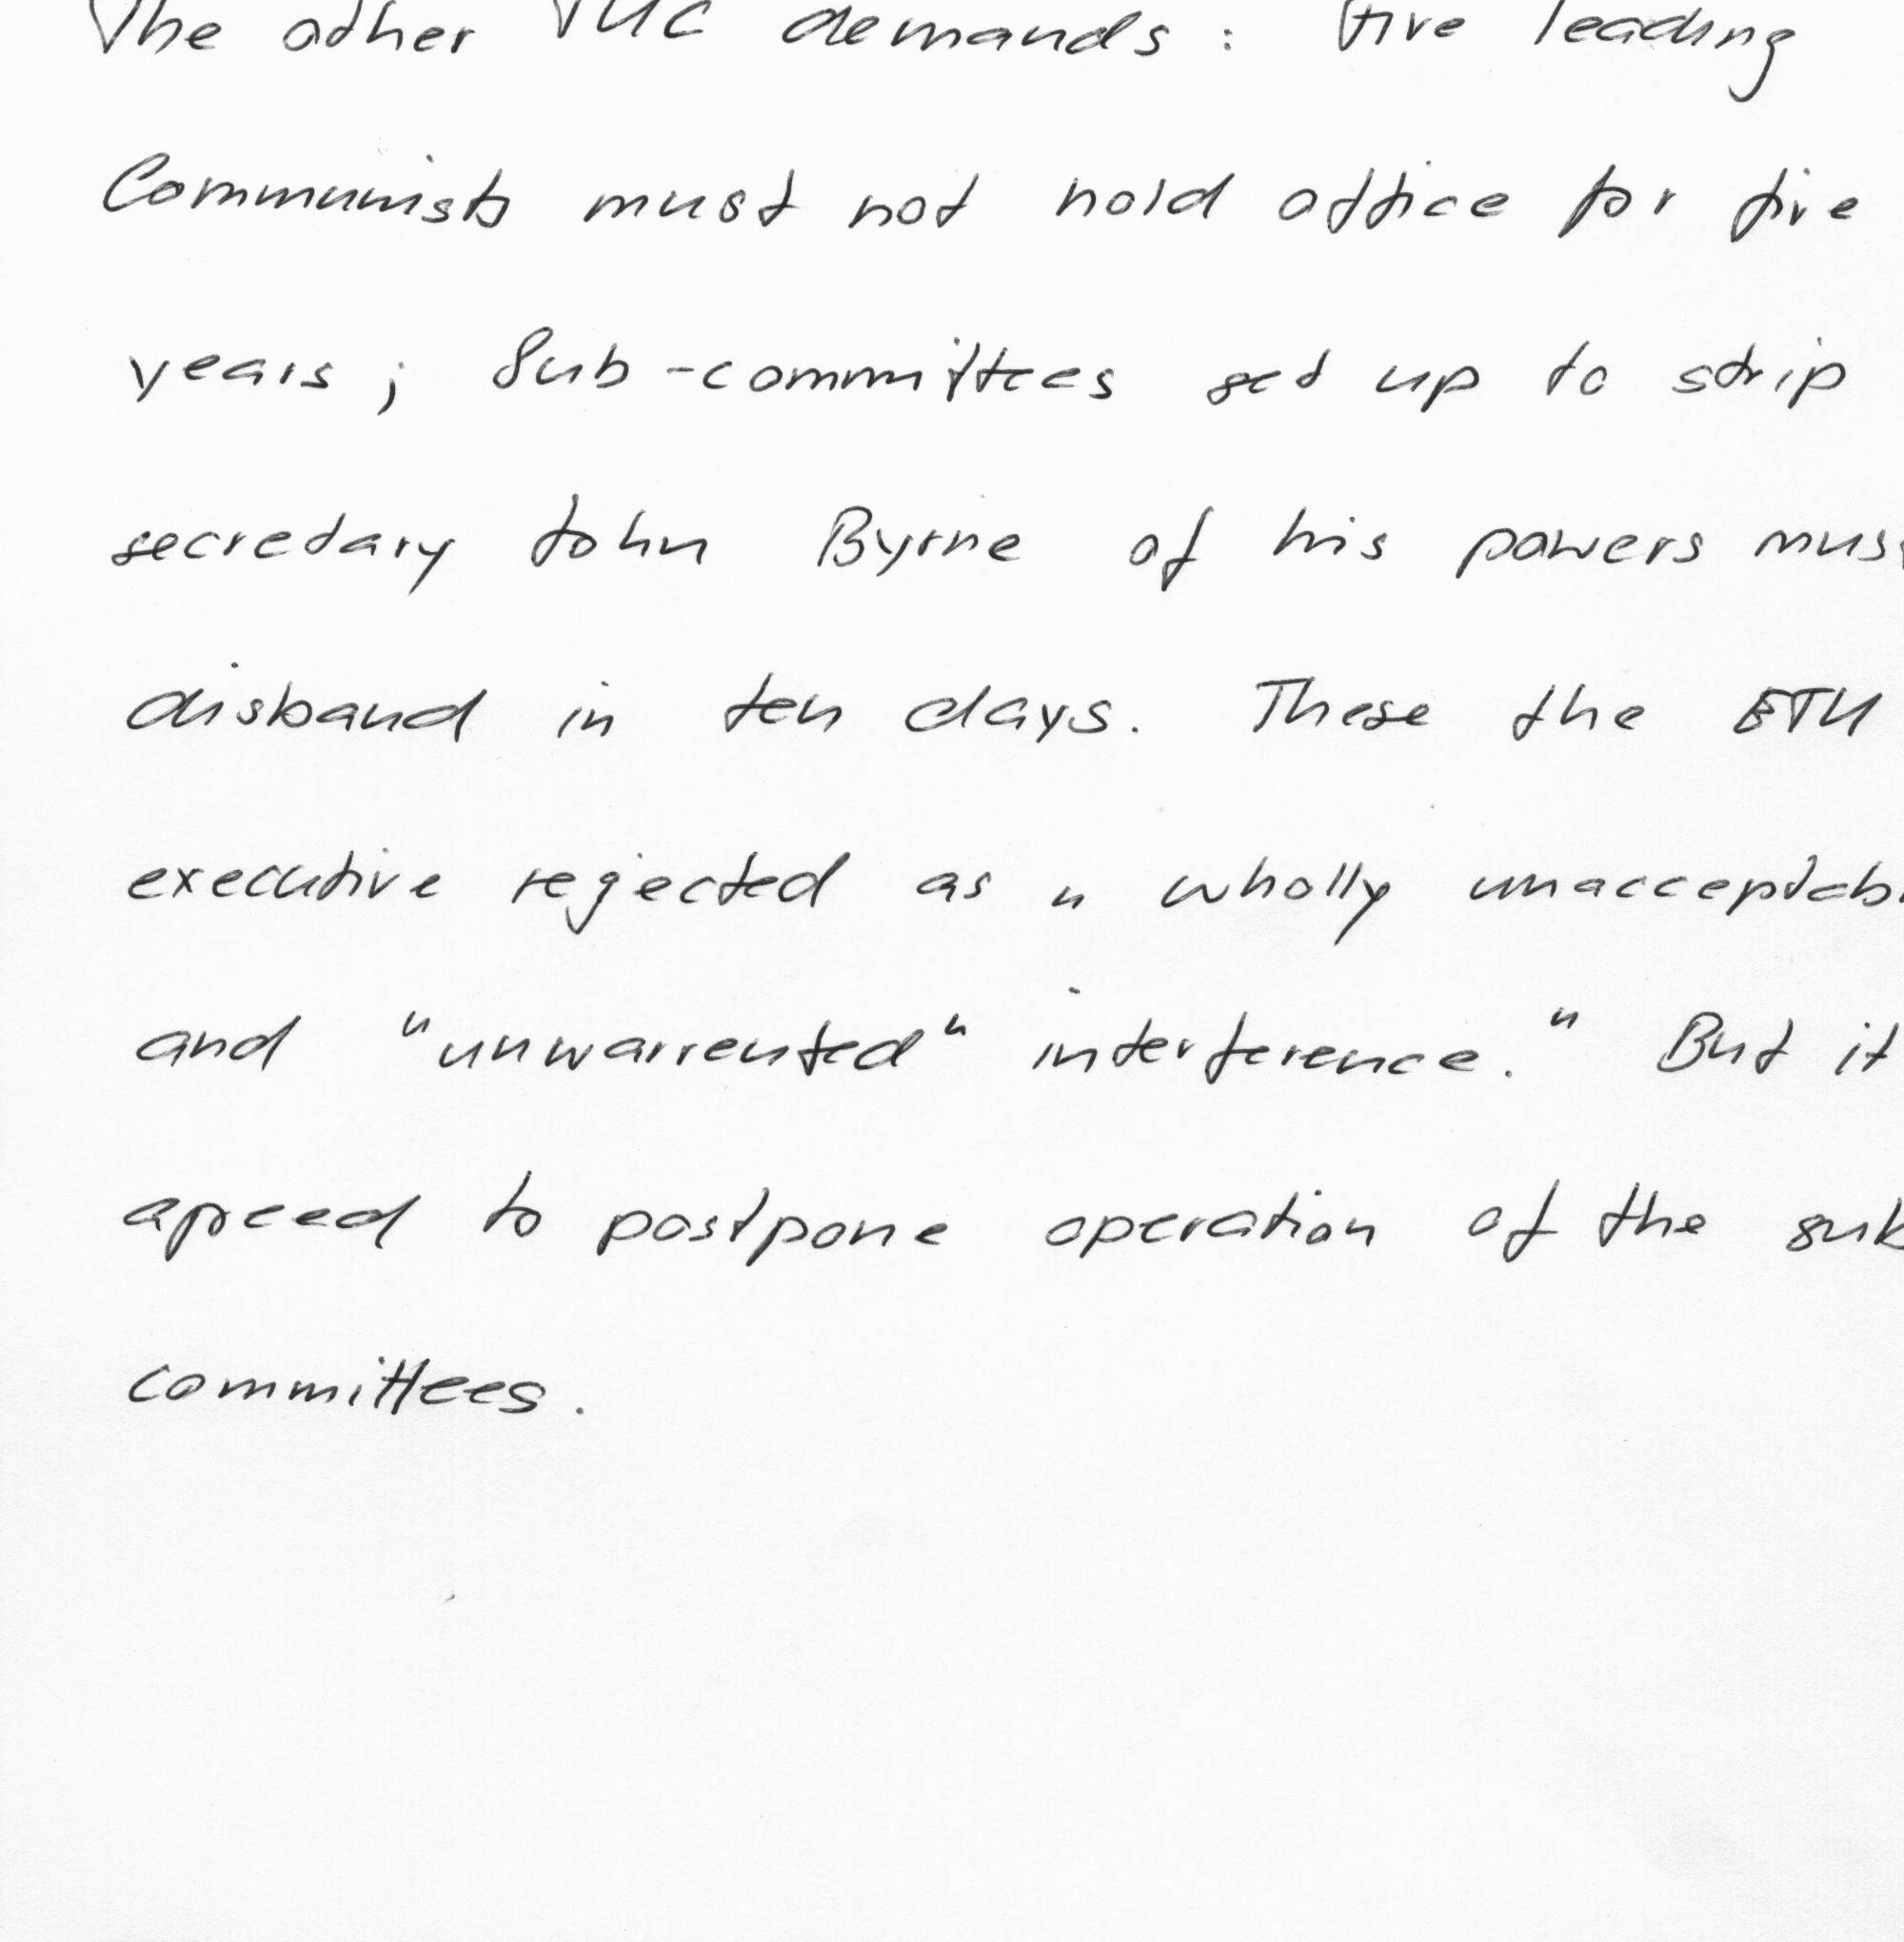 The other TUC demands : five leading
Communists must not hold office for five
years ; Sub-committees set up to strip
secretary John Byrne of his powers
disband in ten days. These the ETU
executive rejected as " wholly
and "unwarrented" interference." But it
agreed to postpone operation of the
committees.